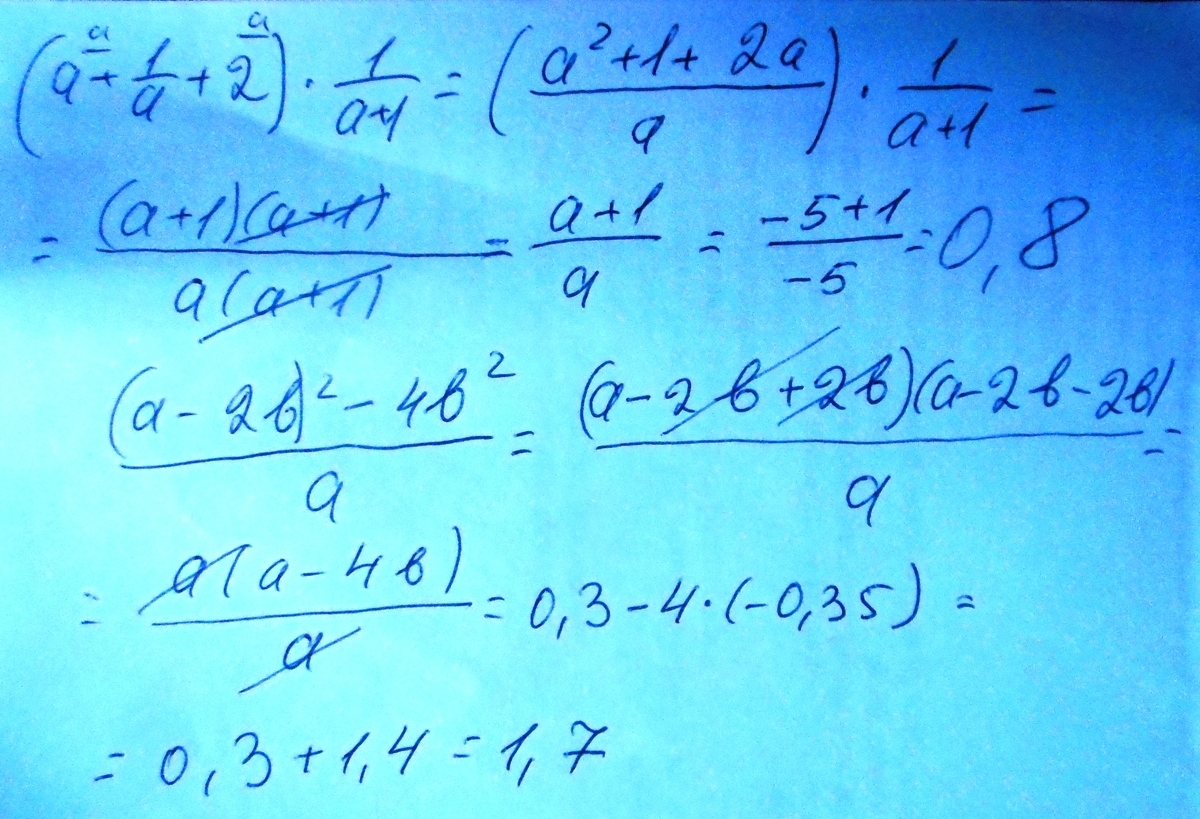 (a^{\overline{a}} + 1/a + 2^{\overline{a}}) · 1/(a+1) = ((a² + 1 + 2a)/a) · 1/(a+1) =
= (a+1)(a+1)/(a(a+1)) = (a+1)/a = (-5+1)/(-5) = 0,8
((a - 2b)² - 4b²)/a = (a - 2b + 2b)(a - 2b - 2b)/a =
= a(a - 4b)/a = 0,3 - 4·(-0,35) =
= 0,3 + 1,4 = 1,7